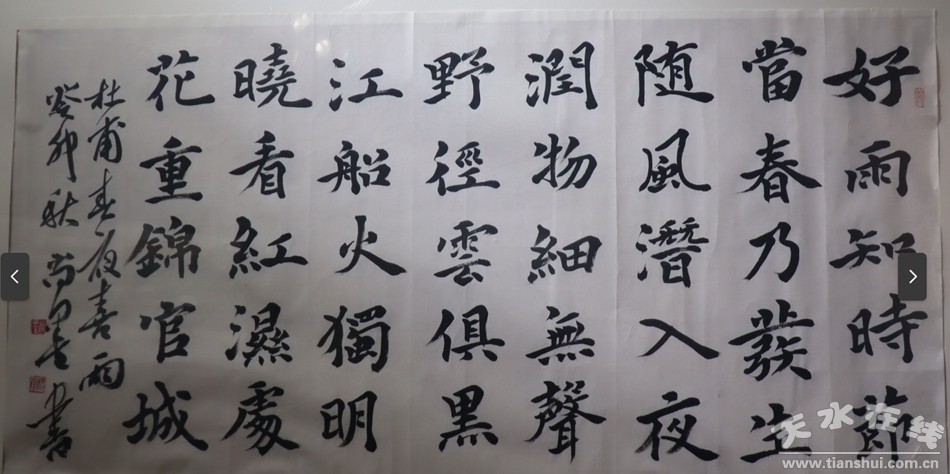 好雨知時節
當春乃發生
随風潛入夜
潤物細無聲
野徑雲俱黑
江船火獨明
曉看紅濕處
花重錦官城
杜甫春夜喜雨
癸卯秋
书
天水在线
www.tianshui.com.cn